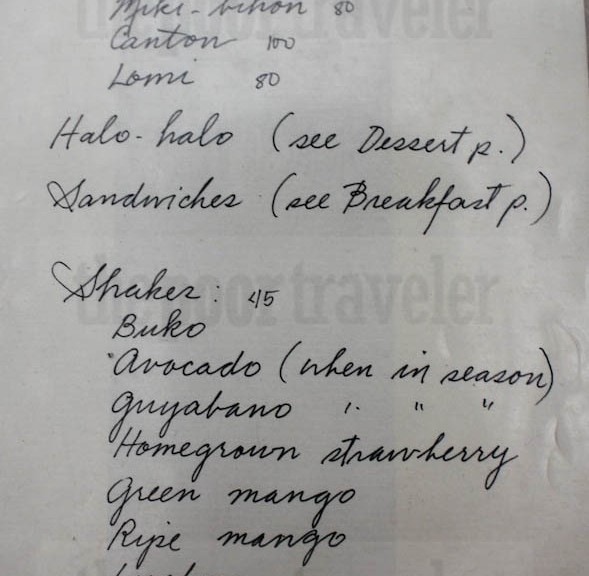 Miki-bihon 80
Canton 100
Lomi 80
Halo-halo (see Dessert p.)
Sandwiches (see Breakfast p.)
Shakes: 45
the poor traveler
Buko
Avocado (when in season)
Guyabano " " "
Homegrown strawberry
Green mango
Ripe mango